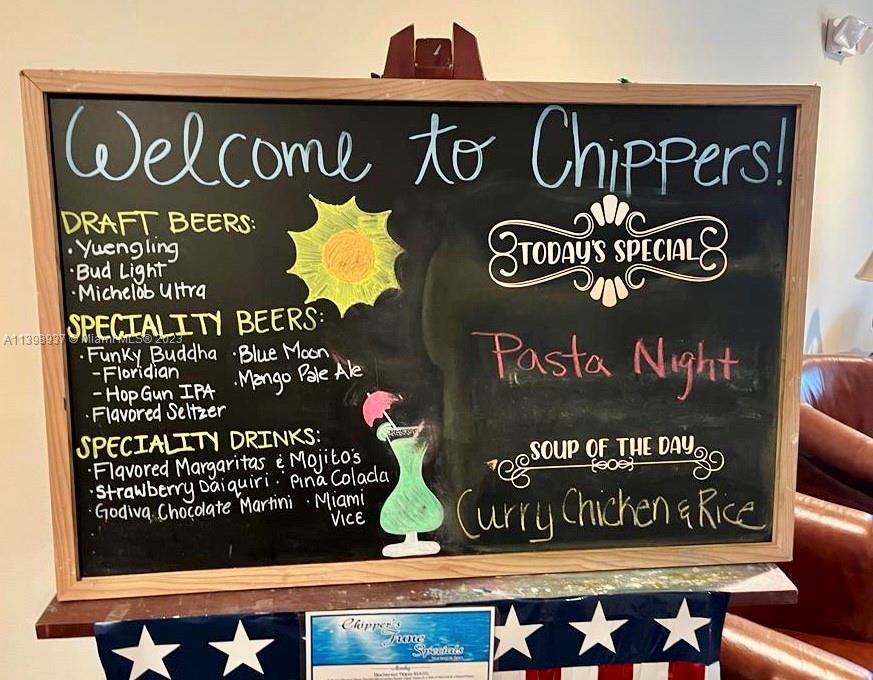 Welcome to Chippers!
DRAFT BEERS:
· Yuengling
· Bud Light
· Michelob Ultra
SPECIALITY BEERS:
· Funky Buddha · Blue Moon
- Floridian · Mango Pale Ale
- Hop Gun IPA
· Flavored Seltzer
SPECIALITY DRINKS:
· Flavored Margaritas & Mojito's
· Strawberry Daiquiri · Pina Colada
· Godiva Chocolate Martini · Miami
Vice
TODAY'S SPECIAL
Pasta Night
SOUP OF THE DAY
Curry Chicken & Rice
Chipper's
June
Specials
© Miami MLS® 2023